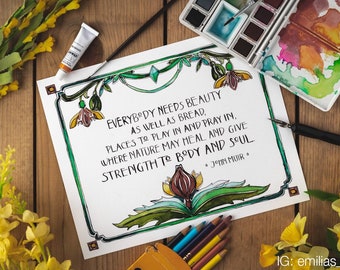 EVERYBODY NEEDS BEAUTY
AS WELL AS BREAD,
PLACES TO PLAY IN AND PRAY IN,
WHERE NATURE MAY HEAL AND GIVE
STRENGTH TO BODY AND SOUL
* JOHN MUIR *
IG: emilias